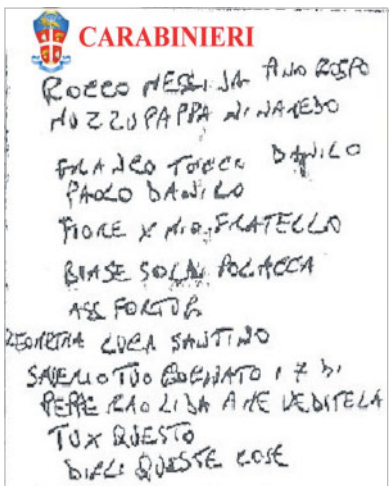 CARABINIERI
ROCCO MESSINA
MUZZUPAPPA
FRANCO DANILO
PAOLO DANILO
FIORE X FRATELLO
BIASE POLACCA
ASS FORTUR
GEOMETRA LUCA SANTINO
SAVERIO TUO COGNATO 17 DI
PEPE LIDA A ME VEDITELA
TU X QUESTO
DIRLI QUESTE COSE